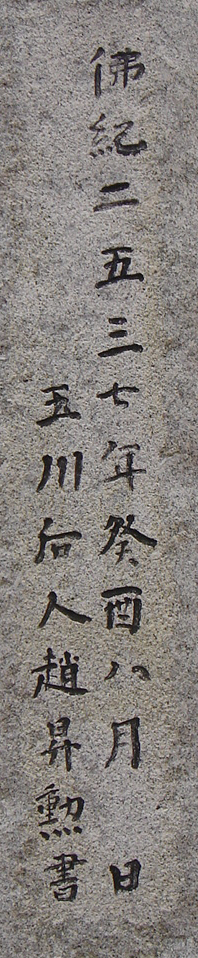 佛紀二五三七年癸酉八月 日
玉川后人趙昇勳書